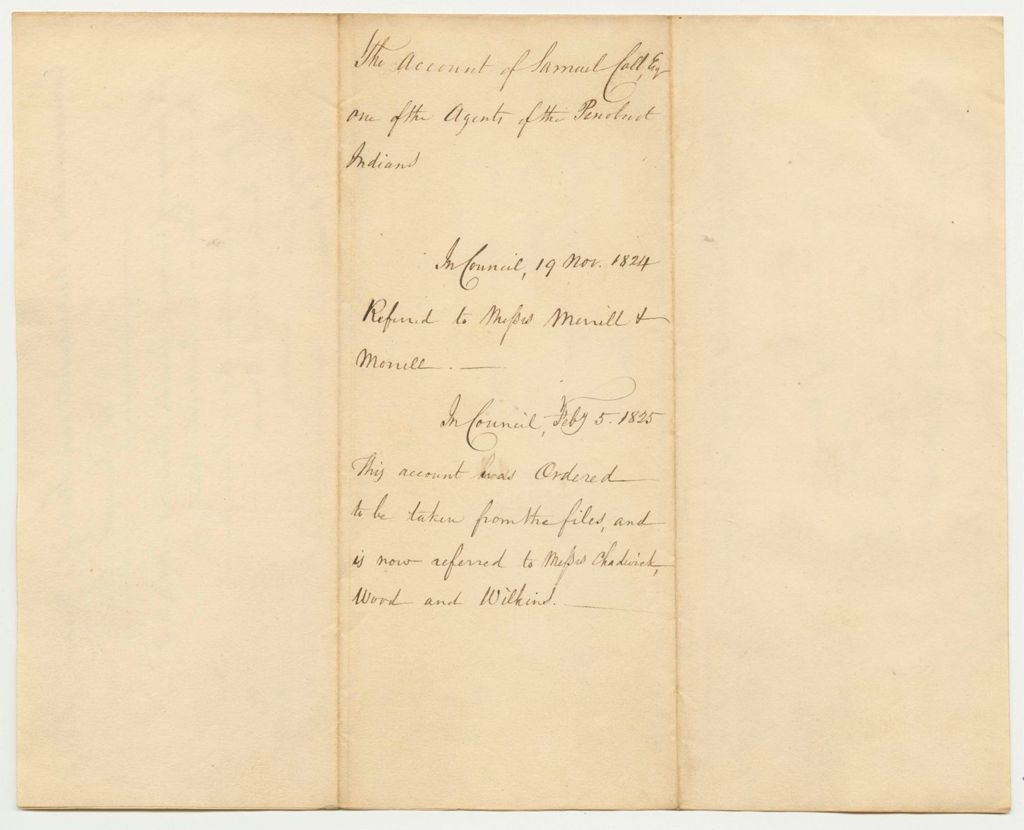 The Account of Samuel Call, Esq
one of the Agents of the Penobscot
Indians
In Council, 19 Nov. 1824
Referred to Messrs Merrill &
Morrell. —
In Council, Feby 5. 1825
This account was Ordered
to be taken from the files, and
is now referred to Messrs Chadwick,
Wood and Wilkins. —